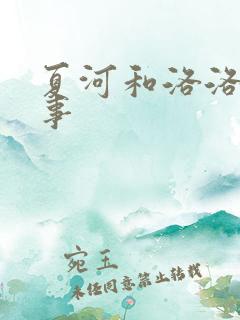 夏河和洛洛
事
宛玉
未经同意禁止转载